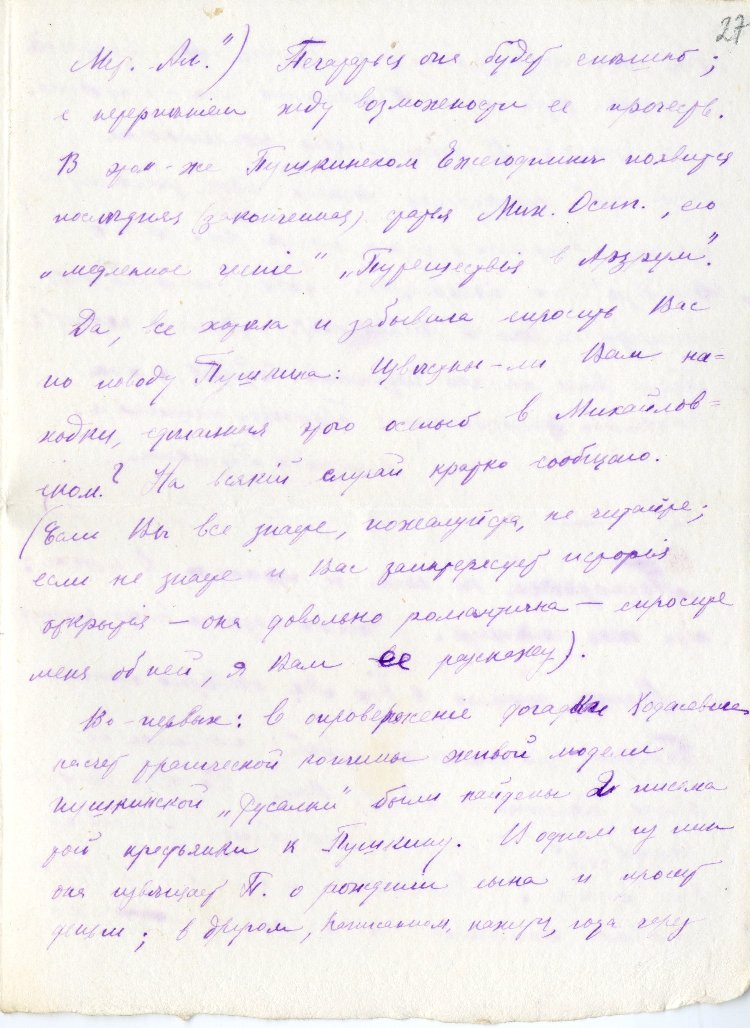 27
Мер. - Ал.") Печататься она будет
с нетерпением жду возможности ее прочесть.
В том-же Пушкинском Ежегоднике появится
последняя (законченная) статья Мих. Осип., его
„медленное чтение" „Путешествия в Арзрум".
Да, все хотела и забывала спросить Вас
по поводу Пушкина: известны-ли Вам на=
ходки, сделанные этою осенью в Михайлов=
ском? На всякий случай кратко сообщаю.
(Если Вы все знаете, пожалуйста, не читайте;
если не знаете и Вас заинтересует история
открытия — она довольно романтична — спросите
меня об ней, я Вам ее расскажу).
Во-первых: в опровержение догадки Ходасевича
насчет трагической кончины живой модели
пушкинской „Русалки" были найдены 2 письма
той крестьянки к Пушкину. В одном из них
она извещает П. о рождении сына и просит
деньги; в другом, написанном, года через